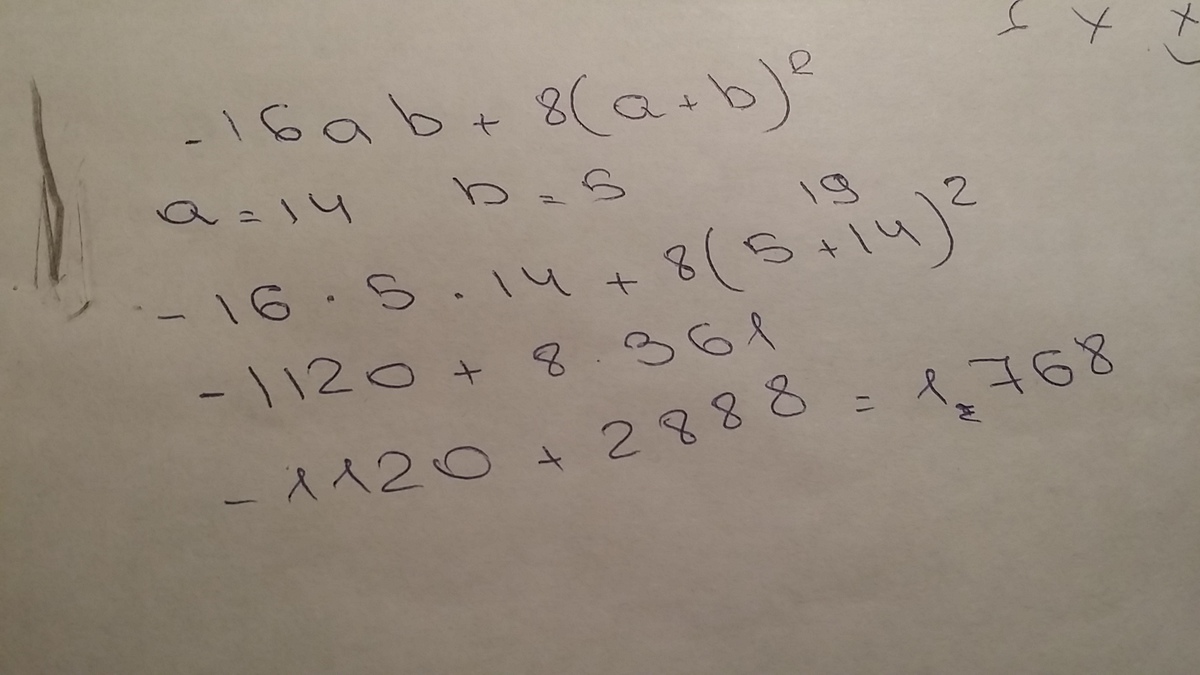 -16ab + 8(a+b)²
a = 14 b = 5
19
-16 · 5 · 14 + 8(5+14)²
-1120 + 8 · 361
-1120 + 2888 = 1768